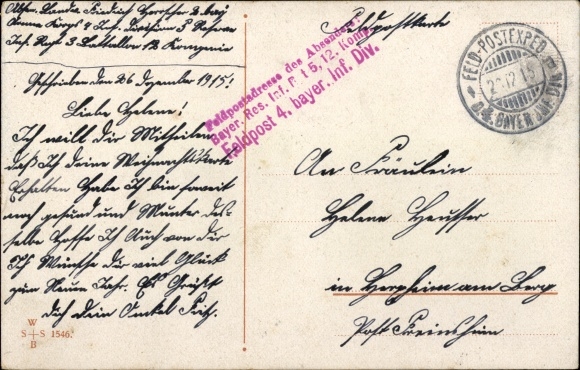 Absn. Landw. Friedrich 2 bay
Armee Korps 4 Inf. Division 5 Reserve
Inf. Regt 3 Battallon 12 Kompanie
Geschrieben den 26 Dezember 1915!
Liebe Helene!
Ich will dir Mitheilen
daß Ich deine Weihnachtskarte
Erhalten Habe Ich bin soweit
noch gesund und Munter das-
selbe Hoffe Ich Auch von dir
Ich Wünsche dir viel Glück
zum Neuen Jahr. Es Grüßt
dich dein Onkel Fritz.
W
S S 1546.
B
Feldpostkarte
Feldpostadresse des Absenders:
Bayer. Res. Inf. R t 5, 12. Komp.
Feldpost 4. bayer. Inf. Div.
FELD-POSTEXPED.
12 15
D. 4. BAYER. INF. DIV.
An Fräulein
Helene Heusser
in Herxheim am Berg
Post Freinsheim